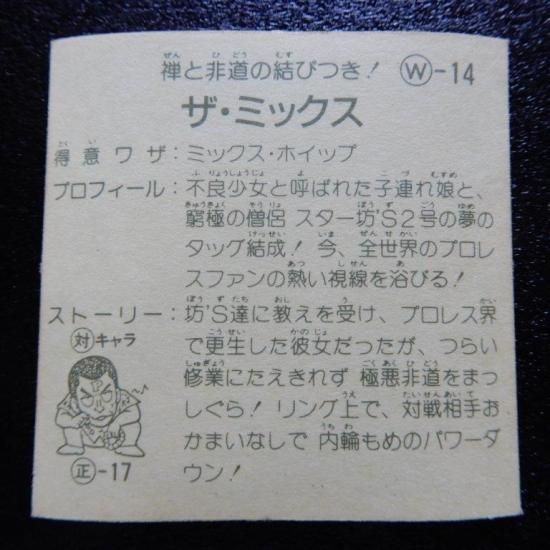 禅と非道の結びつき！ Ⓦ-14
ザ・ミックス
得意ワザ：ミックス・ホイップ
プロフィール：不良少女と呼ばれた子連れ娘と、
窮極の僧侶 スター坊'S2号の夢の
タッグ結成！今、全世界のプロレ
スファンの熱い視線を浴びる！
ストーリー：坊'S達に教えを受け、プロレス界
で更生した彼女だったが、つらい
修業にたえきれず 極悪非道をまっ
しぐら！リング上で、対戦相手お
かまいなしで 内輪もめのパワーダ
ウン！
対キャラ
正-17